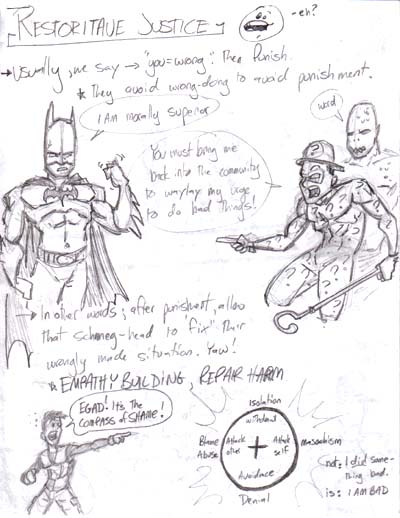 RESTORITAVE JUSTICE
-eh?
Usually, we say → "you=wrong". Then Punish.
* They avoid wrong-doing to avoid punishment.
I AM morally superior
word
You must bring me
back into the community
to waylay my urge
to do bad things!
In other words; after punishment, allow
that schmeg-head to "fix" their
wrongly made situation. Yaw!
* EMPATHY BUILDING, REPAIR HARM
EGAD! It's THE
COMPASS OF SHAME!
Isolation
withdrawl
Blame
Abuse
Attack
other
Attack
self
massochism
Avoidance
Denial
not: I did some-
thing bad.
is: I AM BAD